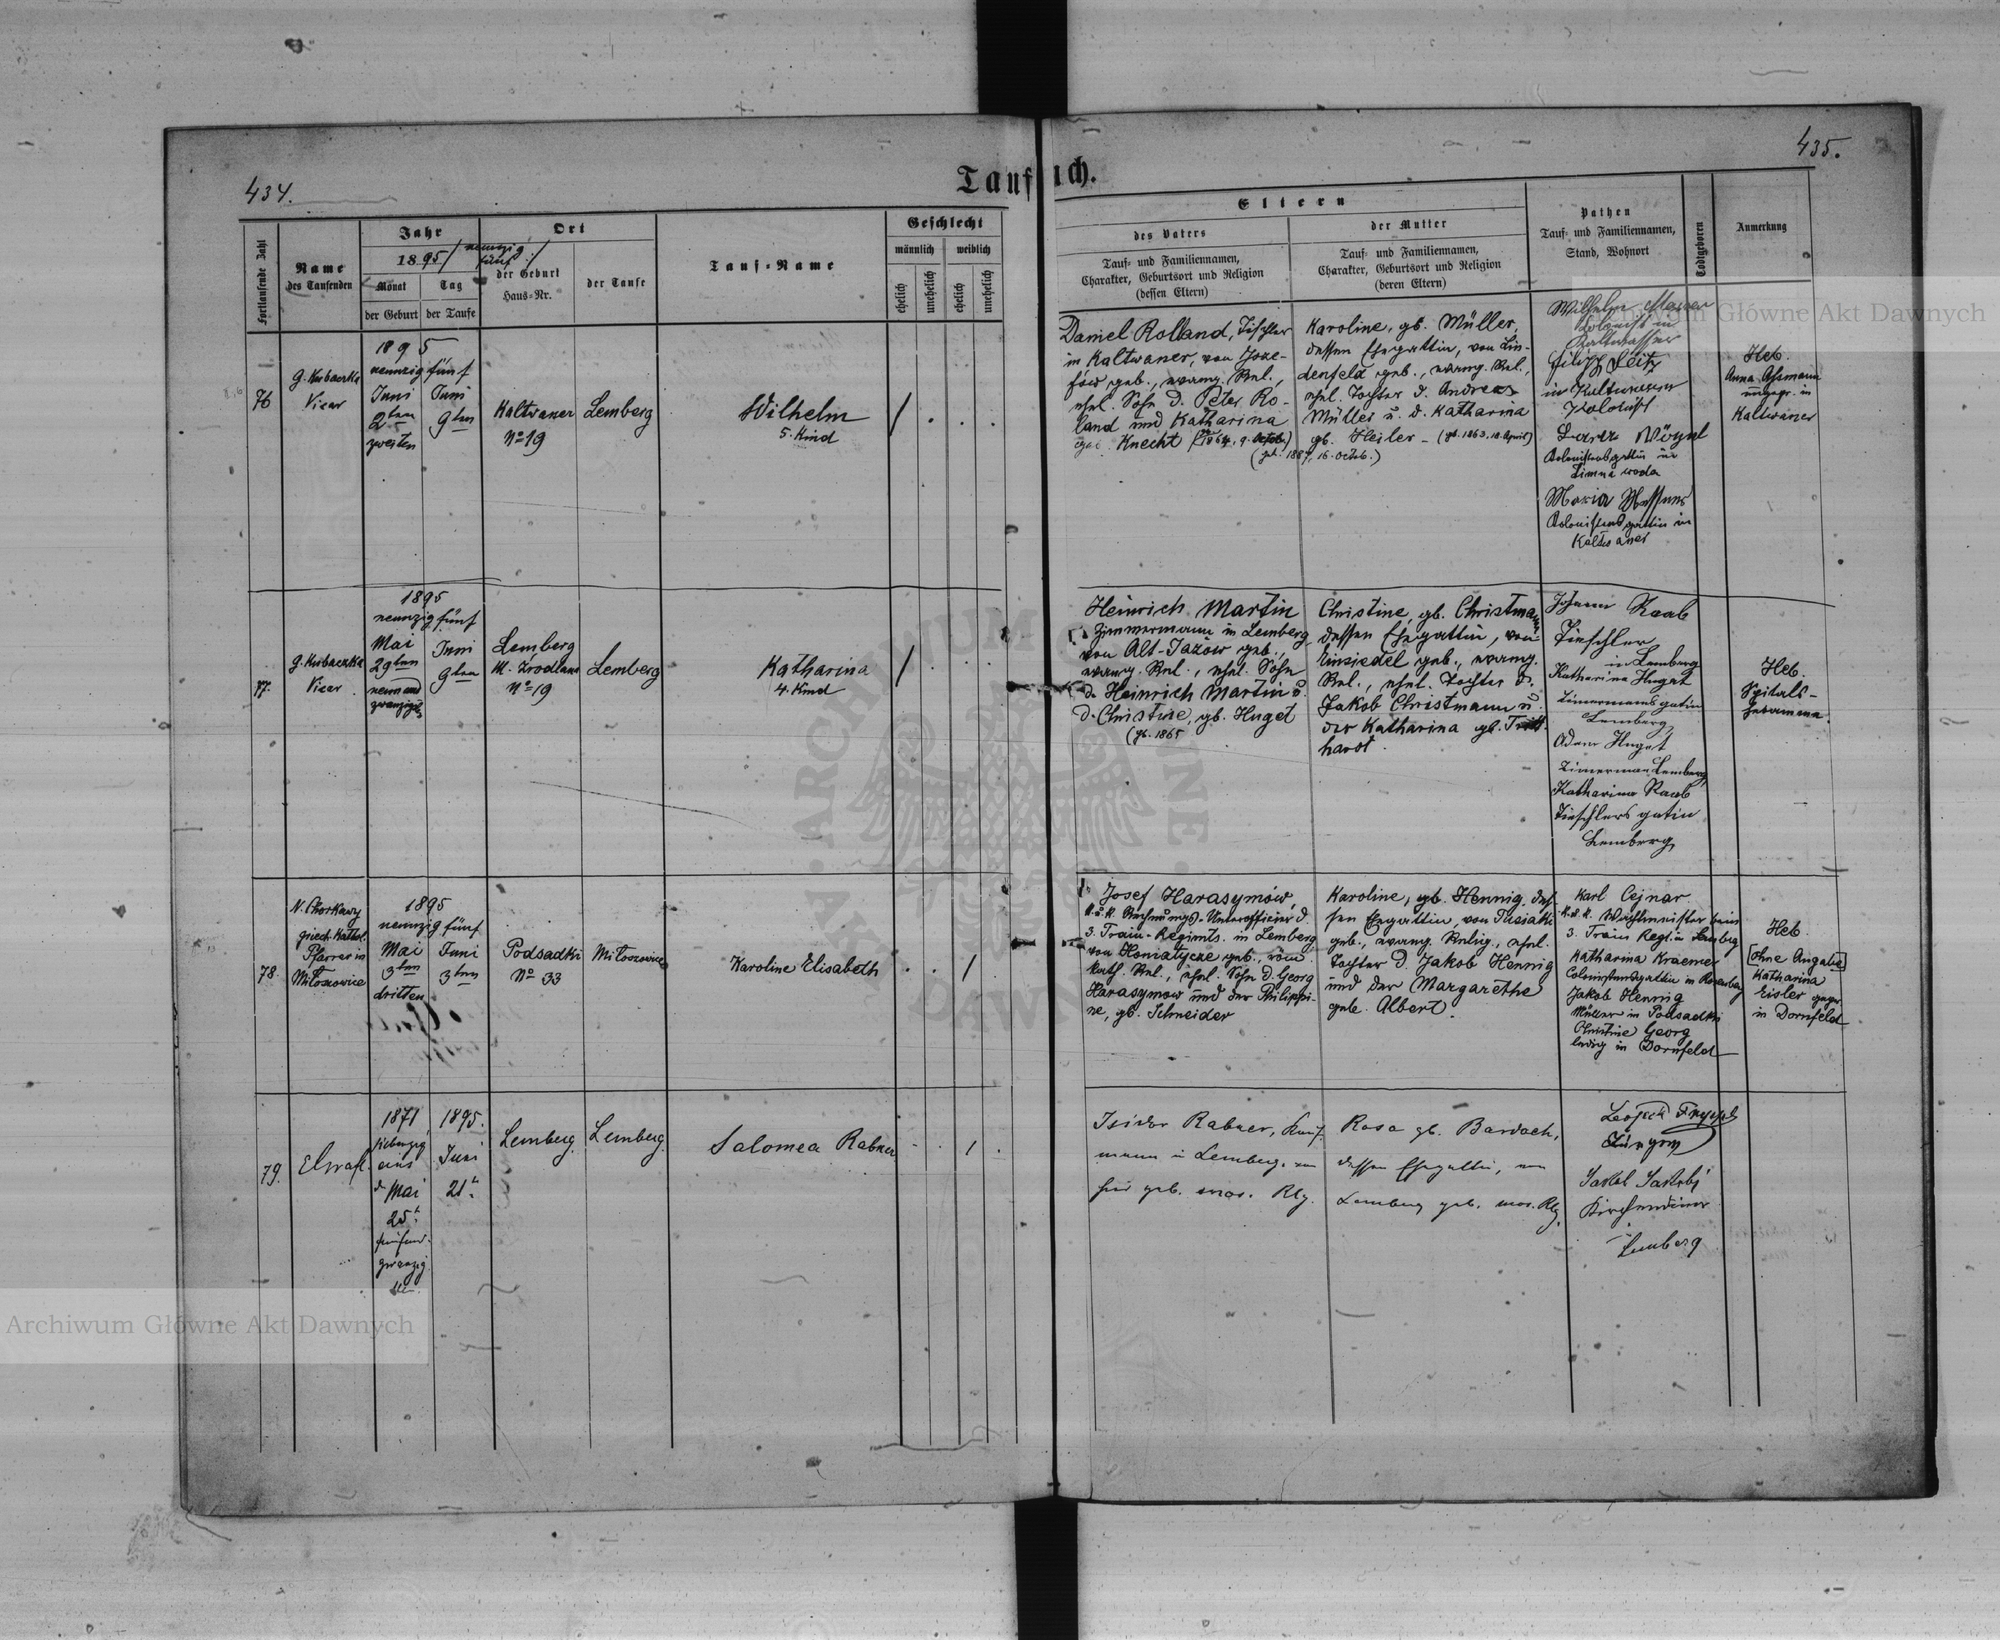 434.
435.
Taufbuch.
Fortlaufende Zahl
Name
des Taufenden
Jahr
1895 / neunzig
fünf /
Monat
der Geburt
Tag
der Taufe
Ort
der Geburt
Haus-Nr.
der Taufe
Tauf-Name
Geschlecht
männlich
weiblich
ehelich
unehelich
ehelich
unehelich
Eltern
des Vaters
Tauf- und Familiennamen,
Charakter, Geburtsort und Religion
(dessen Eltern)
der Mutter
Tauf- und Familiennamen,
Charakter, Geburtsort und Religion
(deren Eltern)
Pathen
Tauf- und Familiennamen,
Stand, Wohnort
Todtgeboren
Anmerkung
76
G. Kubaczka
Vicar
1895
neunzig fünf
Juni
2ten
zweiten
Juni
9ten
Kaltwasser
No 19
Lemberg
Wilhelm
5. Kind
Daniel Rolland, Tischler
in Kaltwasser, von Joze-
fów geb., evang. Rel.,
ehel. Sohn d. Peter Ro-
land und Katharina
geb. Knecht (1864, 9. Octob.)
(get. 1887, 16. Octob.)
Karoline, gb. Müller,
dessen Ehegattin, von Lin-
denfeld geb., evang. Rel.,
ehel. Tochter d. Andreas
Müller u. d. Katharina
gb. Heiler - (gb. 1863, 18. April)
Wilhelm
Kolonist in
Kaltwasser
Filipp Seitz
in Kaltwasser
Kolonist
Kolonistensgattin in
Zimna woda
Maria
Kolonistensgattin in
Kaltwasser
Heb.
Anna
ungepr. in
Kaltwasser
77.
G. Kubaczka
Vicar
1895
neunzig fünf
Mai
29ten
neunund
zwanzigst.
Juni
9ten
Lemberg
No 19
Lemberg
Katharina
4. Kind
Heinrich Martin
Zimmermann in Lemberg
von Alt-Jazow geb.,
evang. Rel., ehel. Sohn
d. Heinrich Martin u.
d. Christine, gb. Huget
(gb. 1865
Christine, gb. Christmann
dessen Ehegattin, von
Einsiedel geb., evang.
Rel., ehel. Tochter d.
Jakob Christmann u.
der Katharina gb. Tritt-
hardt.
Johann Raab
Tieschler
in Lemberg
Katharina Hugat
Zimermans gatin
Lemberg
Adam Hugat
Zimerman Lemberg
Katharina Raab
Tieschlers gatin
Lemberg
Heb.
Spitals-
hebamme.
78.
N. Chorkawy
griech. Kathol.
Pfarrer in
Miłoszowice
1895
neunzig fünf
Mai
3ten
dritten
Juni
3ten
Podsadki
No 33
Miłoszowice
Karoline Elisabeth
Josef Harasymów,
k. u. k. Rechnungs-Unterofficier d.
3. Train-Regimts. in Lemberg
von Honiatycze geb., röm.
kath. Rel., ehel. Sohn d. Georg
Harasymow und der Philippi-
ne, gb. Schneider
Karoline, gb. Hennig, des-
sen Ehegattin, von
geb., evang. Relig., ehel.
Tochter d. Jakob Hennig
und der Margarethe
geb. Albert.
Karl Cejnar
k. u. k. Wachtmeister beim
3. Train Regt. in Lemberg
Katharina Kraemer
Colonistensgattin in Rosenberg
Jakob Hennig
Müller in Podsadki
Christine Georg
ledig in Dornfeld
Heb.
[ohne Angabe]
Katharina
Eisler gepr.
in Dornfeld
79.
1871
siebenzig
eins
d. Mai
25t.
fünfund-
zwanzig
1895.
Juni
21t.
Lemberg.
Lemberg.
Salomea Rabner
Isidor Rabner, Kauf-
mann in Lemberg, von
hier geb. mos. Rlg.
Rosa gb. Bardach,
dessen Ehegattin, von
Lemberg geb. mos. Rlg.
Kirchendiener
in
Lemberg
Archiwum Główne Akt Dawnych
Archiwum Główne Akt Dawnych
ARCHIWUM GŁÓWNE AKT DAWNYCH